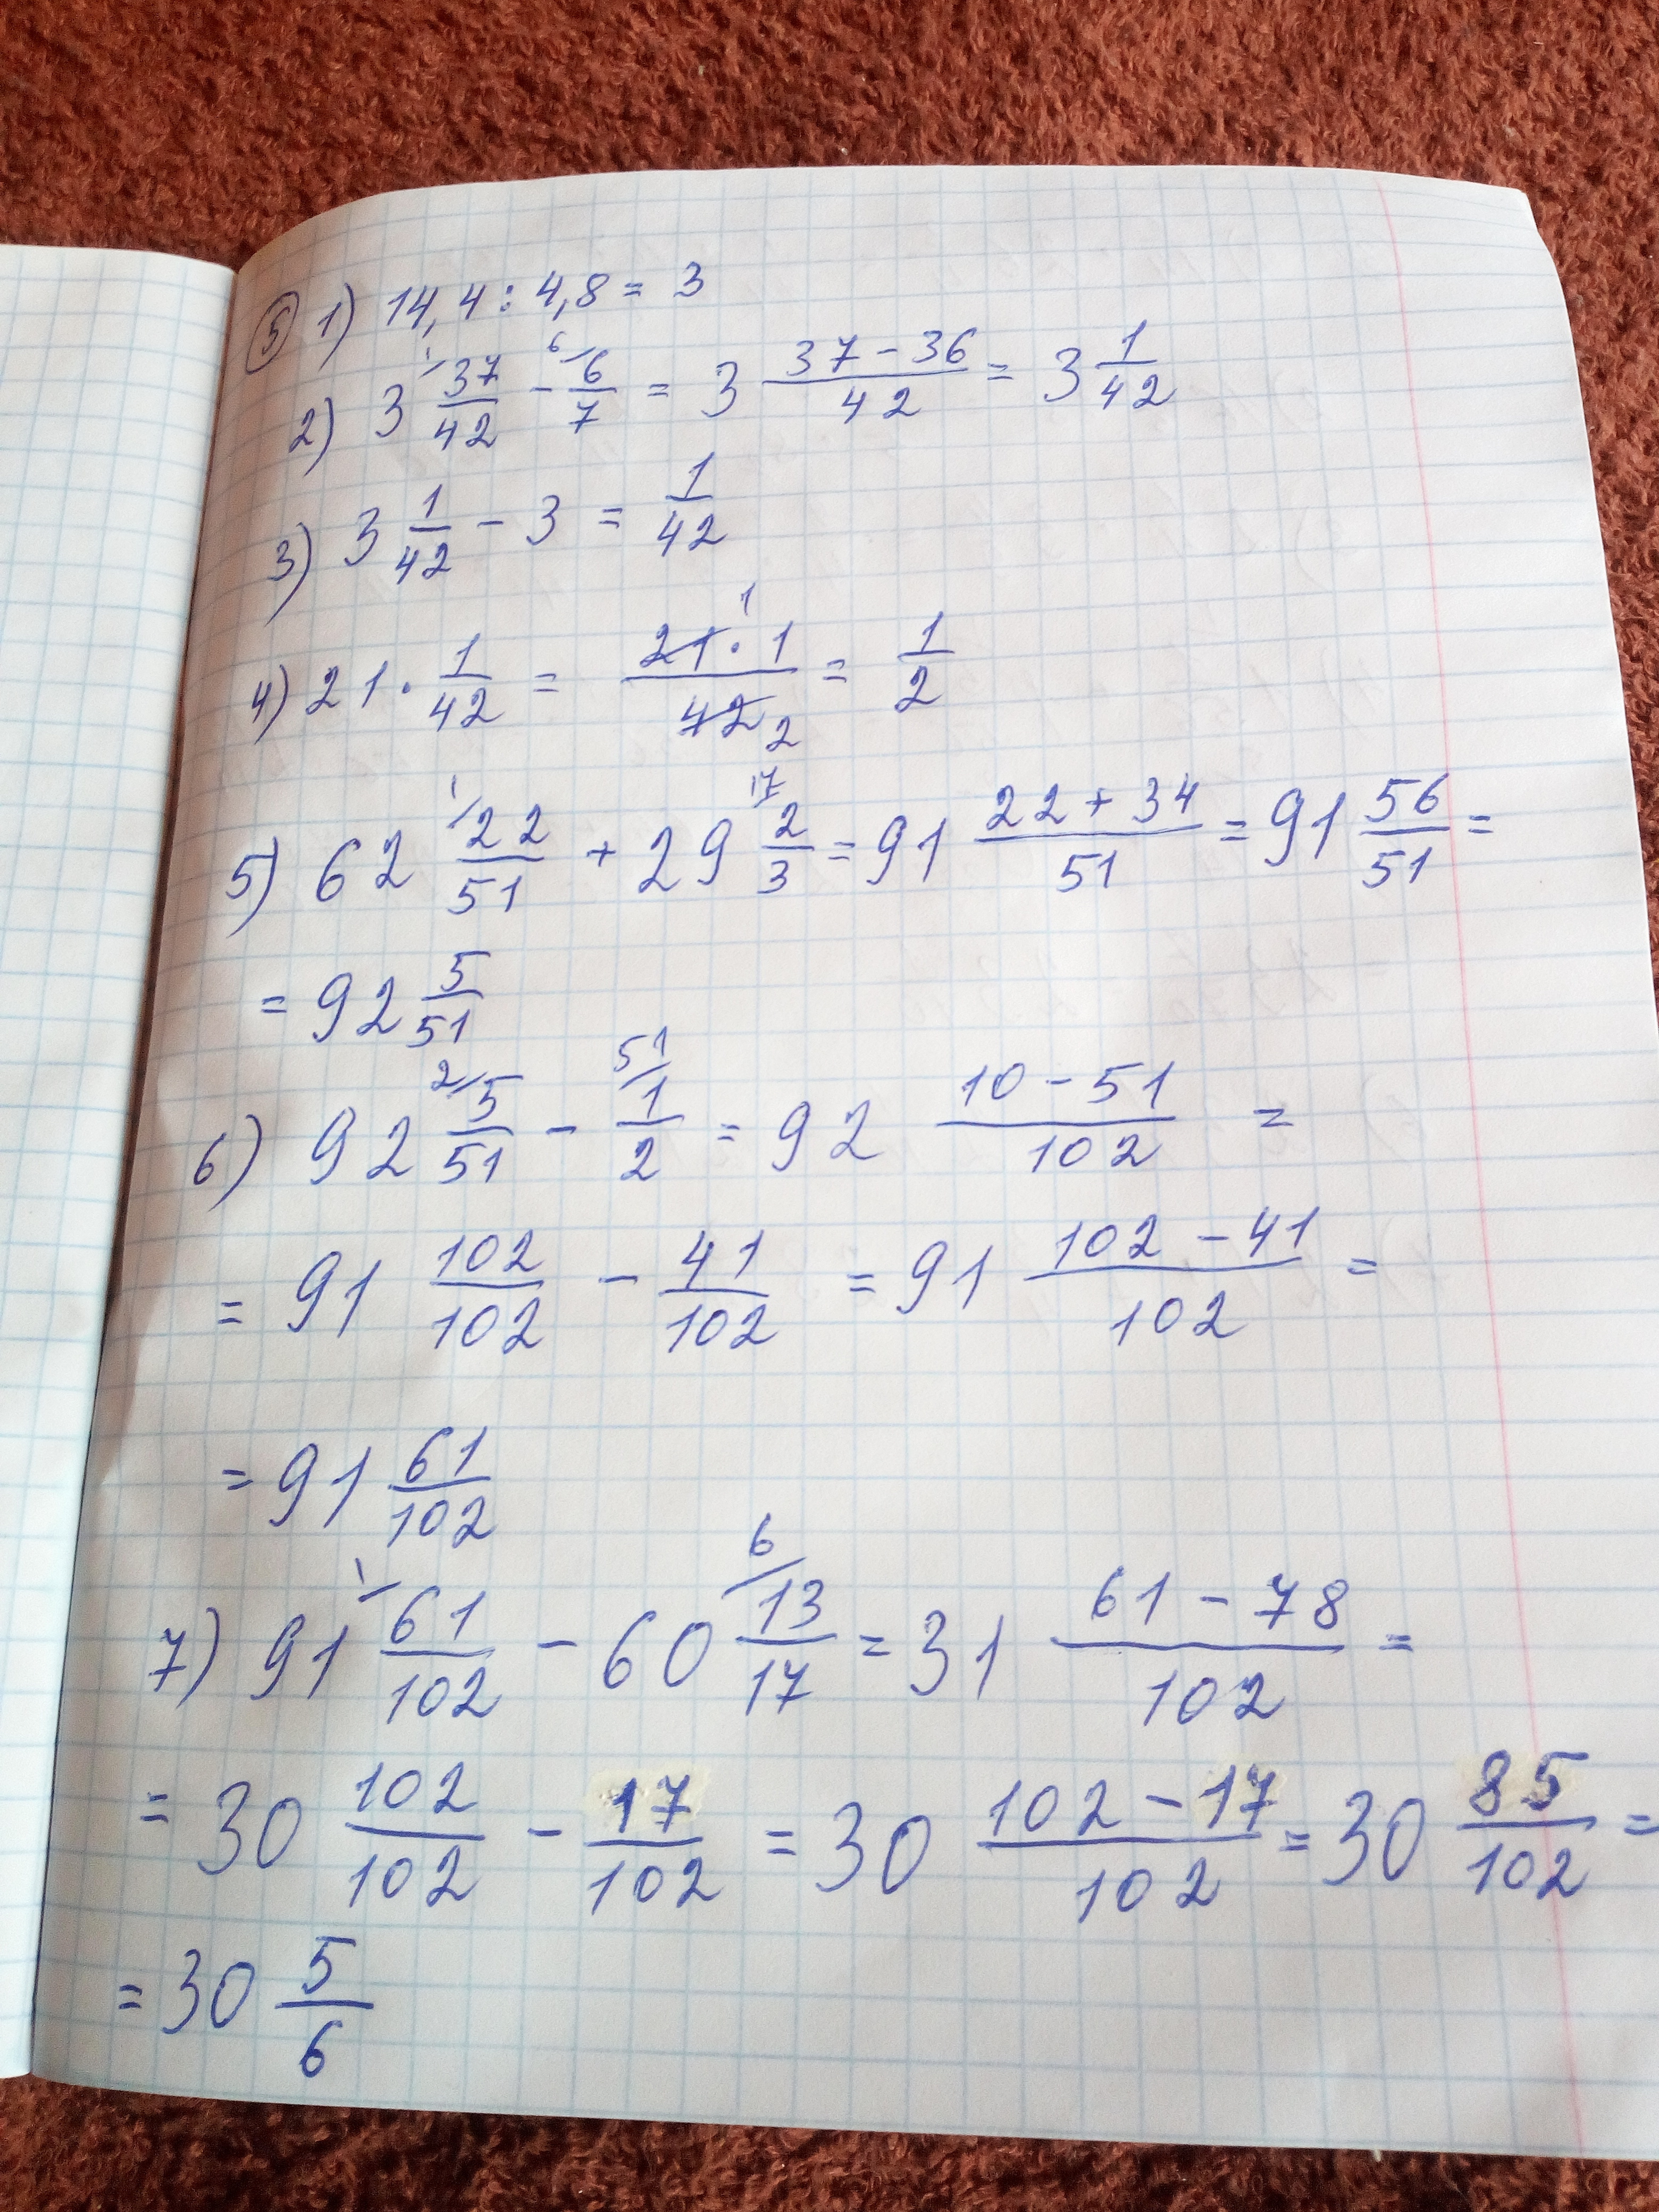 ⑤ 1) 14,4 : 4,8 = 3
2) 3 ¹⁄ 37/42 - ⁶⁄ 6/7 = 3 (37 - 36)/42 = 3 1/42
3) 3 1/42 - 3 = 1/42
4) 21 · 1/42 = (21 · 1)/42 ¹ ₂ = 1/2
5) 62 ¹⁄ 22/51 + 29 ¹⁷⁄ 2/3 = 91 (22 + 34)/51 = 91 56/51 =
= 92 5/51
6) 92 ²⁄ 5/51 - ⁵¹⁄ 1/2 = 92 (10 - 51)/102 =
= 91 102/102 - 41/102 = 91 (102 - 41)/102 =
= 91 61/102
7) 91 ¹⁄ 61/102 - 60 ⁶⁄ 13/17 = 31 (61 - 78)/102 =
= 30 102/102 - 17/102 = 30 (102 - 17)/102 = 30 85/102 =
= 30 5/6